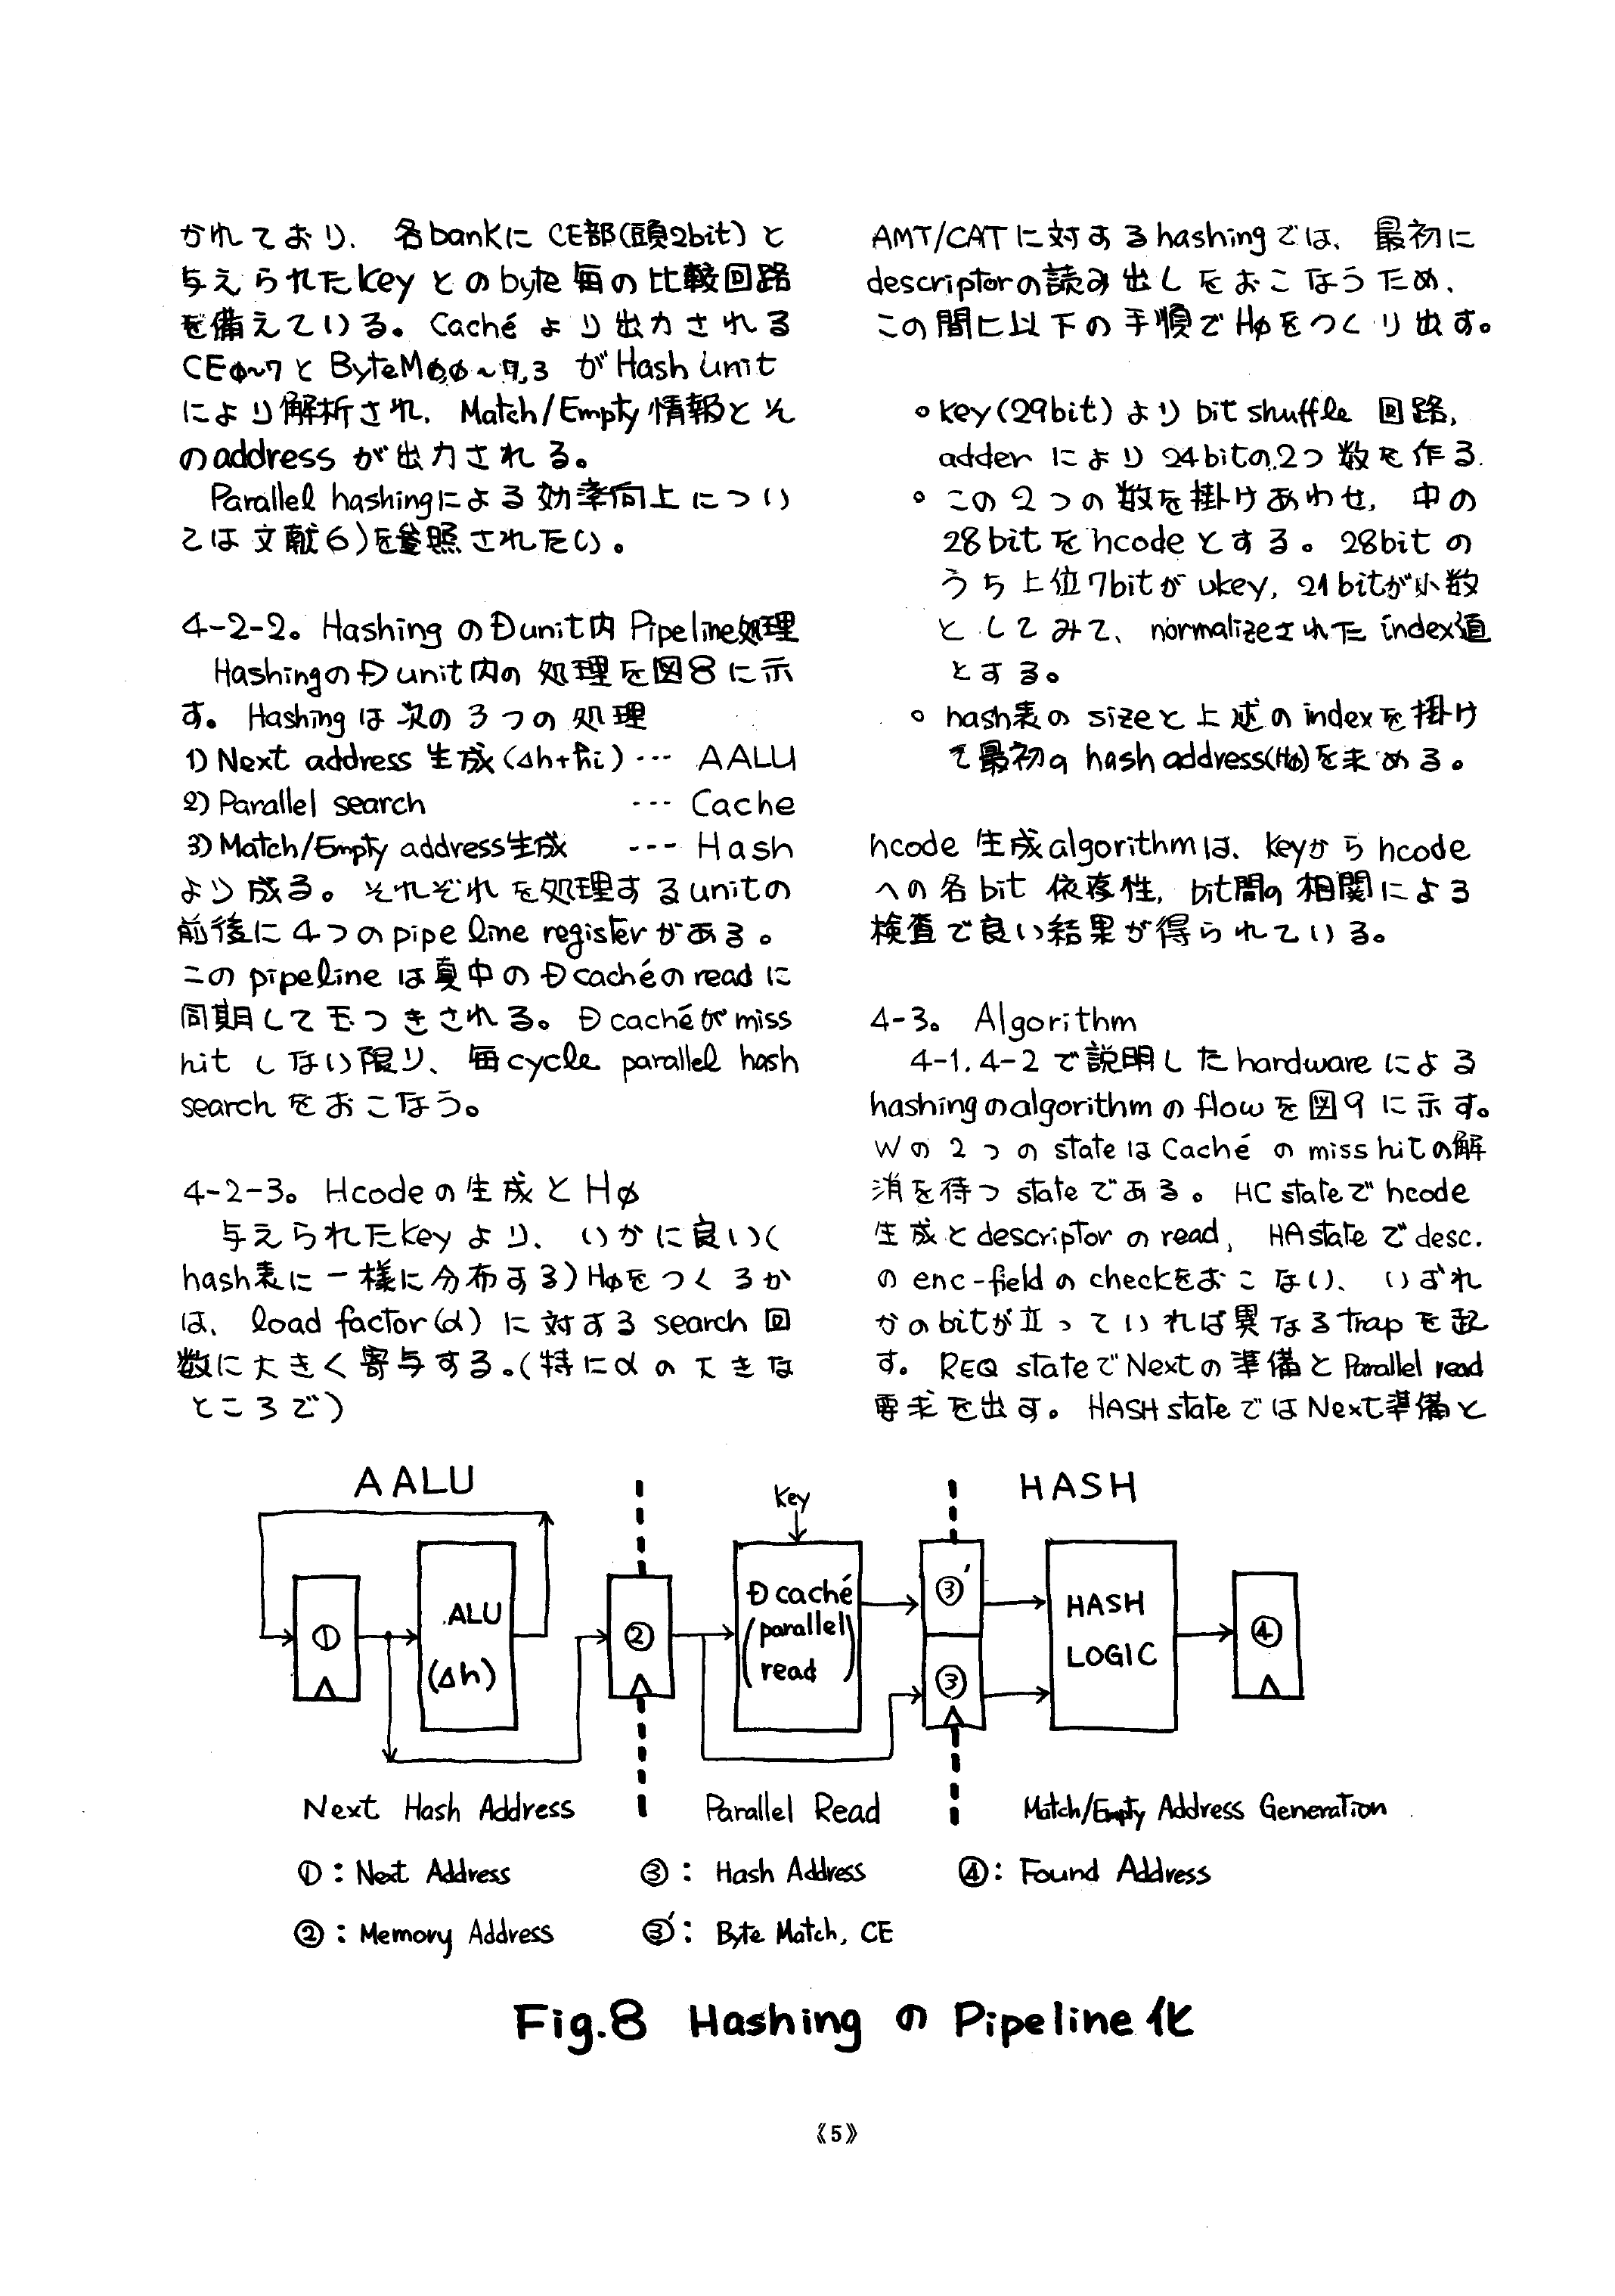 かれており、各bankにCE部(頭2bit)と
与えられたkeyとのbyte毎の比較回路
を備えている。Cachéより出力される
CEφ~7とByteMφ,φ~7,3がHash unit
により解析され、Match/Empty情報とそ
のaddressが出力される。
Parallel hashingによる効率向上につい
ては文献6)を参照されたい。
4-2-2。HashingのĐunit内Pipeline処理
HashingのĐunit内の処理を図8に示
す。Hashingは次の3つの処理
1) Next address生成(Δh+hi)… AALU
2) Parallel search … Cache
3) Match/Empty address生成 --- Hash
より成る。それぞれを処理するunitの
前後に4つのpipe line registerがある。
このpipelineは真中のĐcachéのreadに
同期して玉つきされる。Đcachéがmiss
hitしない限り、毎cycle parallel hash
searchをおこなう。
4-2-3。Hcodeの生成とHφ
与えられたkeyより、いかに良い(
hash表に一様に分布する)Hφをつくるか
は、load factor(α)に対するsearch回
数に大きく寄与する。(特にαの大きな
ところで)
AMT/CATに対するhashingでは、最初に
descriptorの読み出しをおこなうため、
この間に以下の手順でHφをつくり出す。
○ key(29bit)よりbit shuffle回路,
adderにより24bitの2つ数を作る.
○ この2つの数を掛けあわせ,中の
28bitをhcodeとする。28bitの
うち上位7bitがukey, 21bitが小数
としてみて、normalizeされたindex値
とする。
○ hash表のsizeと上述のindexを掛け
て最初のhash address(Hφ)を求める。
hcode生成algorithmは、keyからhcode
への各bit依存性,bit間の相関による
検査で良い結果が得られている。
4-3。Algorithm
4-1.4-2で説明したhardwareによる
hashingのalgorithmのflowを図9に示す。
Wの2つのstateはCachéのmiss hitの解
消を待つstateである。HC stateでhcode
生成とdescriptorのread, HA stateでdesc.
のenc-fieldのcheckをおこない、いずれ
かのbitが立っていれば異なるtrapを起
す。REQ stateでNextの準備とParallel read
要求を出す。HASH stateではNext準備と
AALU
HASH
key
①
ALU
(Δh)
②
Đ caché
(parallel
read)
③′
③
HASH
LOGIC
④
Next Hash Address
Parallel Read
Match/Empty Address Generation
①: Next Address
③: Hash Address
④: Found Address
②: Memory Address
③′: Byte Match, CE
Fig.8 HashingのPipeline化
《5》